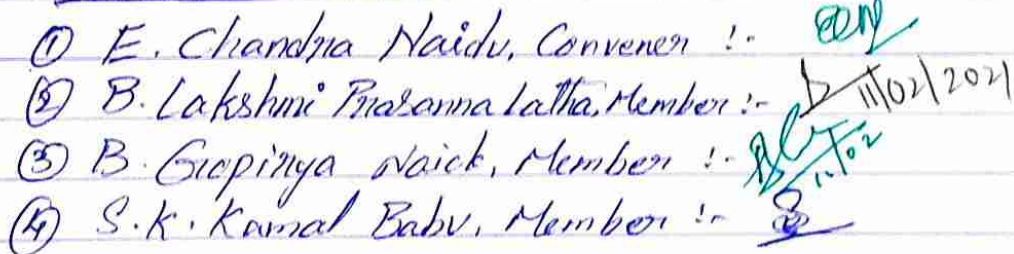 ① E. Chandra Naidu, Convener :-
② B. Lakshmi Prasanna Latha, Member :- 11/02/2021
③ B. Gopinya Naick, Member :- 11/02
④ S.K. Kamal Babu, Member :-